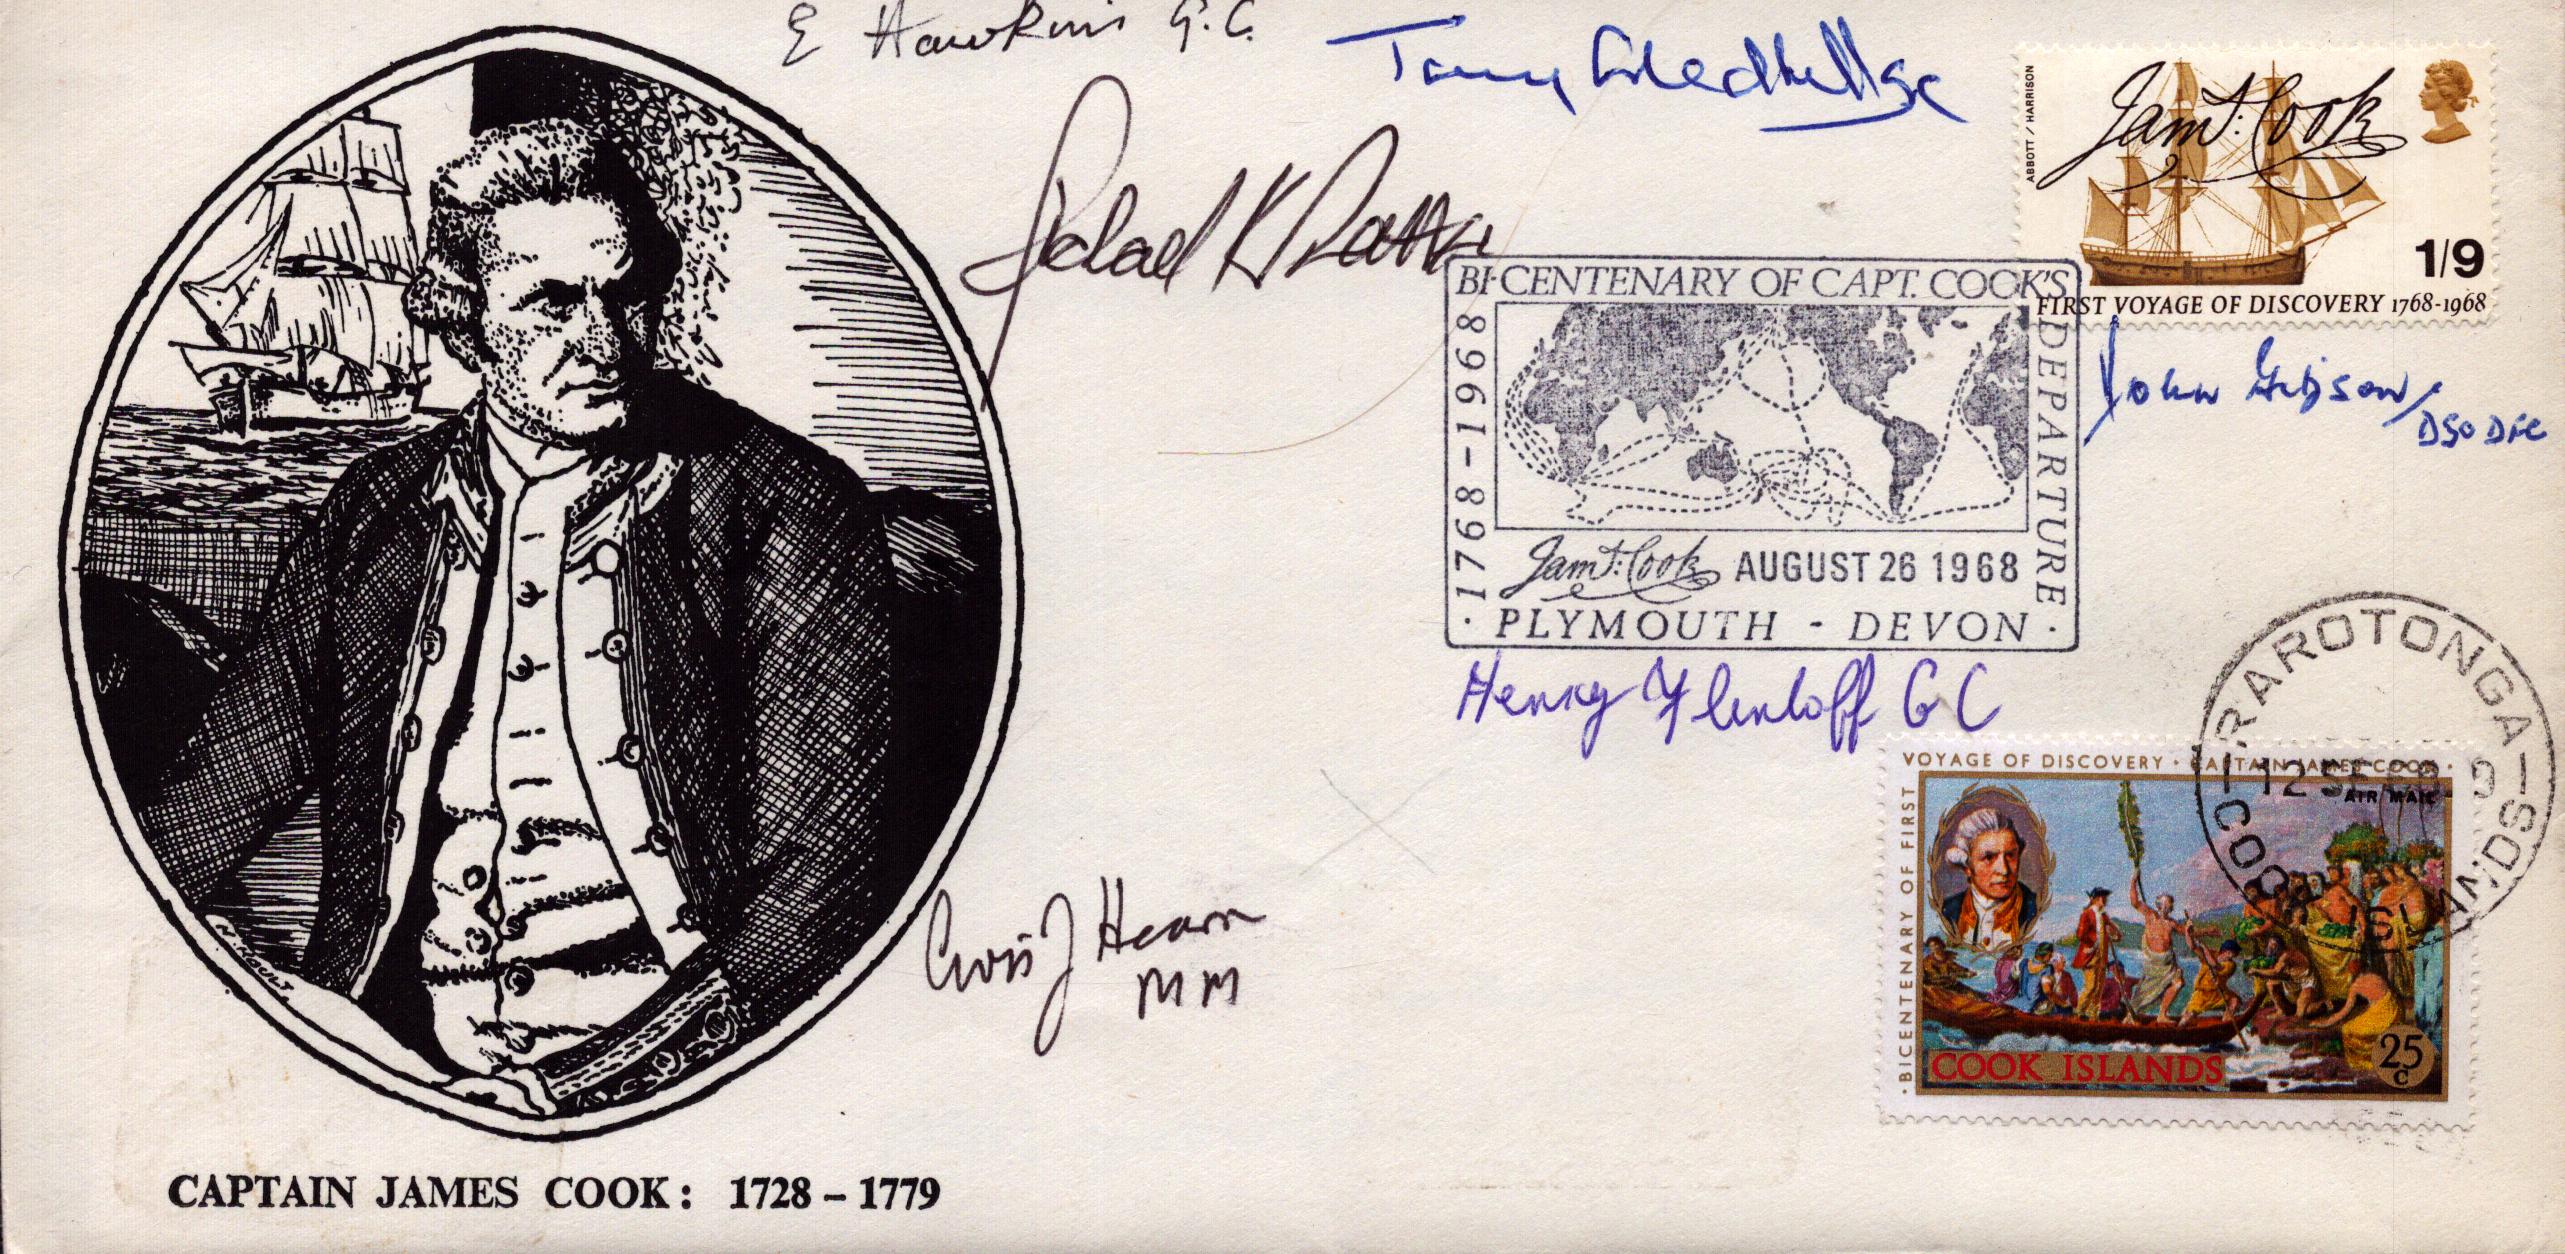 E Hawkins G.C.
Tony Gledhill GC
ABBOTT / HARRISON
Jams: Cook
1/9
FIRST VOYAGE OF DISCOVERY 1768-1968
BI-CENTENARY OF CAPT. COOK'S
DEPARTURE
· 1768-1968
Jams: Cook AUGUST 26 1968
· PLYMOUTH - DEVON ·
John Gibson
DSO DFC
Henry Flintoff GC
RAROTONGA
12 SE 68
COOK ISLANDS
· BICENTENARY OF FIRST
VOYAGE OF DISCOVERY · CAPTAIN JAMES COOK ·
AIR MAIL
COOK ISLANDS
25
c
J Hearn
MM
CAPTAIN JAMES COOK: 1728 – 1779